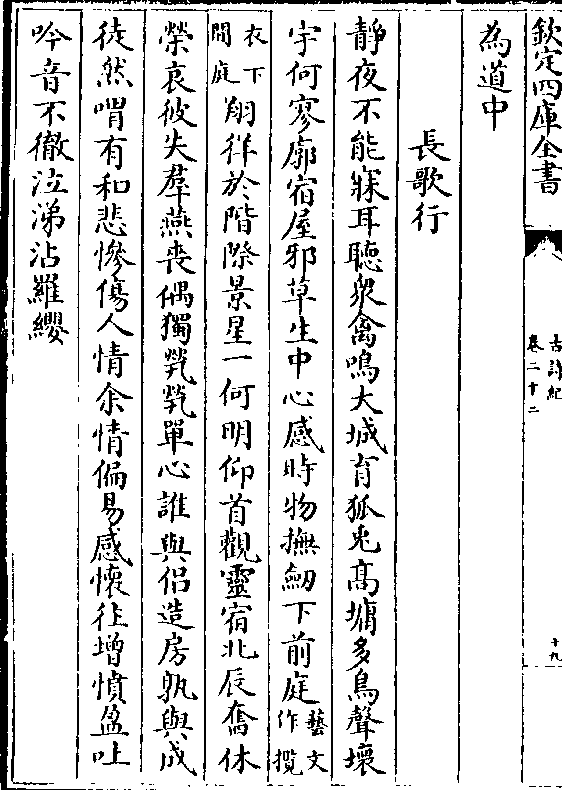 欽定四庫全書
古詩紀
卷二十二
十九
為道中
長歌行
靜夜不能寐耳聽衆禽鳴大城育狐兎高墉多鳥聲壞
宇何寥廓宿屋邪草生中心感時物撫劒下前庭藝文作攬
衣下間庭翔徉於階際景星一何明仰首觀靈宿北辰奮休
榮哀彼失羣燕喪偶獨煢煢單心誰與侣造房孰與成
徒然喟有和悲慘傷人情余情偏易感懷往增憤盈吐
吟音不徹泣涕沾羅纓